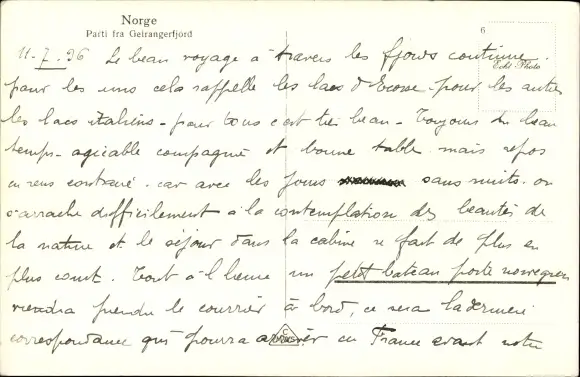 Norge
Parti fra Geirangerfjord
6
Echt Photo
11-7-36 Le beau voyage à travers les fjords continue.
pour les uns cela rappelle les lacs d'Ecosse pour les autres
les lacs italiens - pour tous c'est très beau - Toujours du beau
temps - agréable compagnie et bonne table. mais repos
en sens contraire. car avec les jours sans nuits. on
s'arrache difficilement à la contemplation des beautés de
la nature et le séjour dans la cabine se fait de plus en
plus court. Tout à l'heure un petit bateau poste norvégien
viendra prendre le courrier à bord, ce sera la dernière
correspondance qui pourra arriver en France avant notre